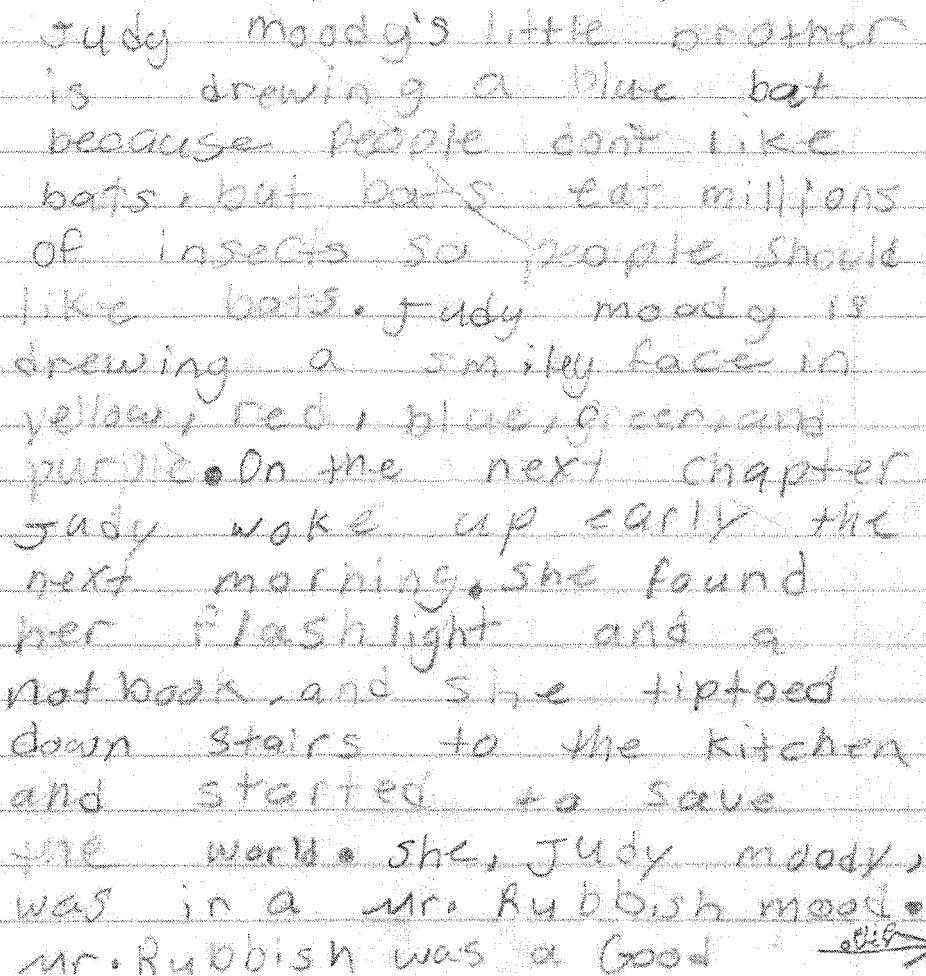 Judy moody's little brother
is drewing a blue bat
becaause people don't like
bats, but bats eat millions
of insects so people should
like bats. Judy moody is
drewing a smiley face in
yellow, red, blue, green, and
purple. On the next chapter
Judy woke up early the
next morning. she found
her flashlight and a
notbook, and she tiptoed
down stairs to the kitchen
and started to save
the world. she, Judy moody,
was in a Mr. Rubbish mood.
Mr. Rubbish was a Good